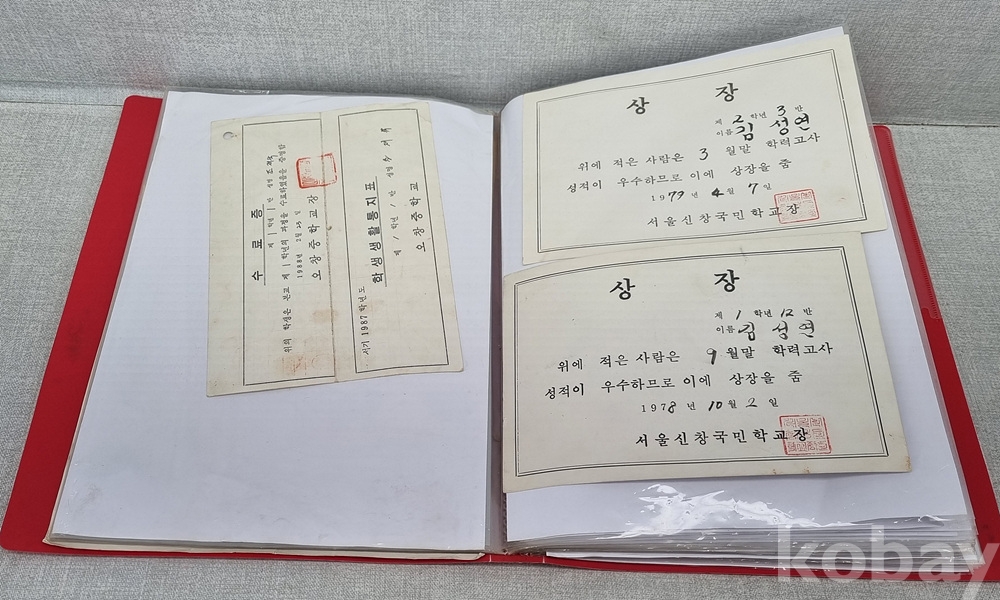 수 료 증
제 1 학년 1 반 성명
위의 학생은 본교 제 1 학년의 과정을 수료하였음을 증명함
1988년 2월 25일
오창중학교장
서기 1987학년도
학생생활통지표
제 1 학년 1 반 성명
오창중학교
상 장
제 2 학년 3 반
이름 김 성연
위에 적은 사람은 3 월말 학력고사
성적이 우수하므로 이에 상장을 줌
1979 년 4 월 7 일
서울신창국민학교장
상 장
제 1 학년 12 반
이름 김 성연
위에 적은 사람은 9 월말 학력고사
성적이 우수하므로 이에 상장을 줌
1978 년 10 월 2 일
서울신창국민학교장
kobay